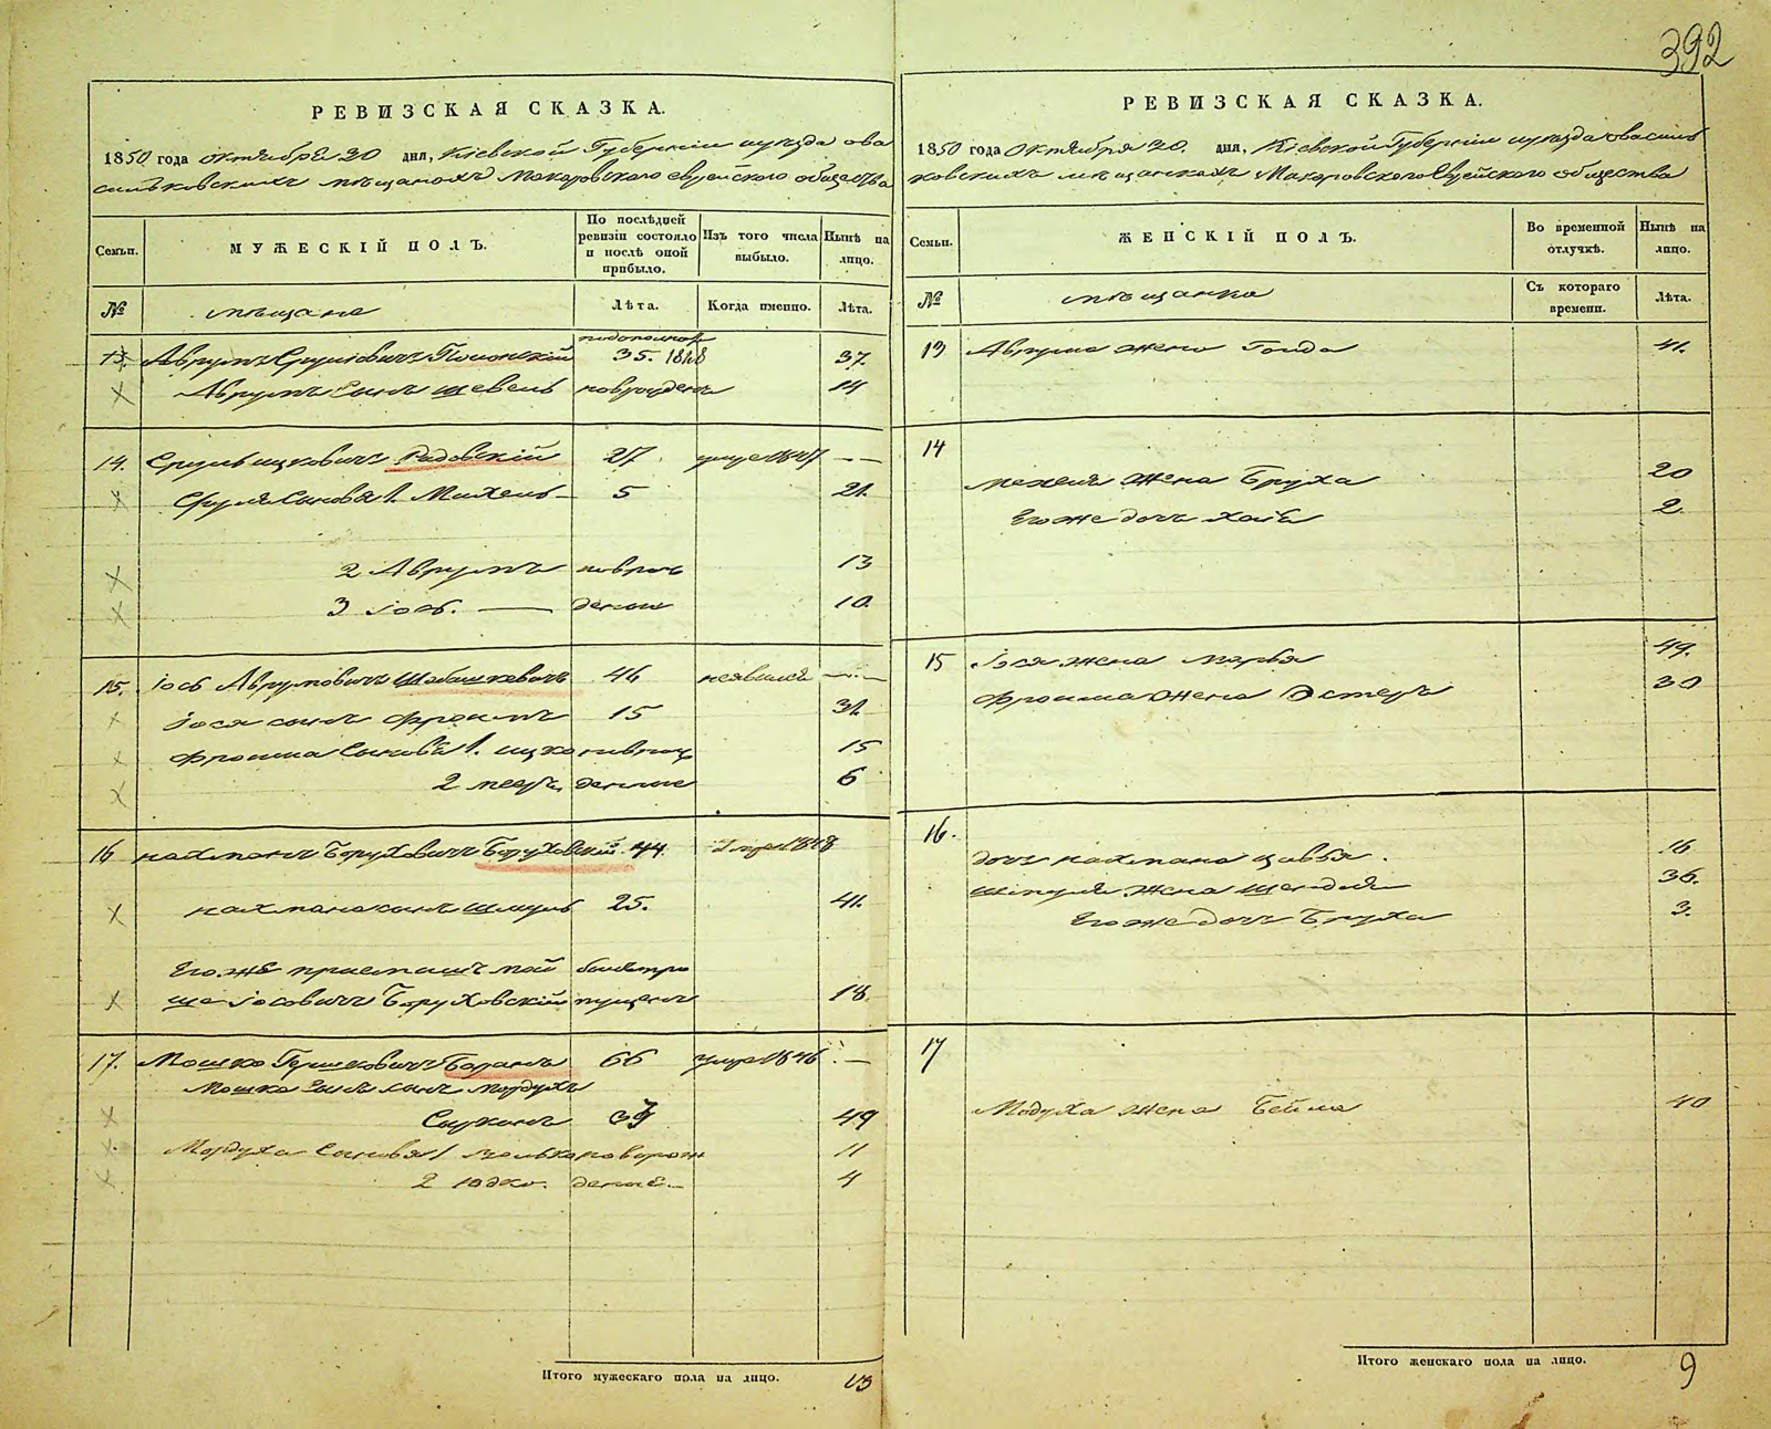 392
РЕВИЗСКАЯ СКАЗКА.
1850 года октября 20 дня, Кіевской Губерніи уезда о ва
сильковскихъ мѣщанахъ Макаровского еврейского общества
Семьи.
МУЖЕСКІЙ ПОЛЪ.
По послѣдней ревизіи состояло и послѣ оной прибыло.
Изъ того числа выбыло.
Нынѣ на лицо.
№
мѣщане
Лѣта.
Когда именно.
Лѣта.
13. Аврумъ Срулiовичъ 35. 1848 37.
Аврумъ сынъ Шевель новорожденъ 14
14. Сруль Ицковичъ Радовскій 27 умре 1847 — —
Сруля Сыновья 1. Михель 5 21.
2 Аврумъ новрож 13
3 Іось. — денные 10.
15. Іось Аврумовичъ Шабашкевичъ 46 неявился —
Іося сынъ Фроимъ 15 31.
Фроима Сыновья 1. Ицко новрож 15
2 Мееръ денные 6
16 Нахманъ Боруховичъ Боруховскій 44. умре 1848
Нахмана сынъ Шмуль 25. 41.
Его же пріемышъ
Іосовичъ Боруховскій пущенъ 18.
17. Мошко Гершковичъ Баранъ 66 умре 1846 —
Мошка сынъ Мордухъ
39 49
Мордуха Сыновья 1 новорож 11
2 Юдко. денные. 4
Итого мужескаго пола на лицо. 13
РЕВИЗСКАЯ СКАЗКА.
1850 года Октября 20. дня, Кіевской Губерніи уезда о василь
ковскихъ мѣщанкахъ Макаровского Еврейского общества
Семьи.
ЖЕНСКІЙ ПОЛЪ.
Во временной отлучкѣ.
Нынѣ на лицо.
№
мѣщанки
Съ котораго времени.
Лѣта.
13 Аврума жена Голда 41.
14
Михеля жена Бруха 20
Его же дочь Хая 2.
15 Іося жена Марья 49.
Фроима жена Эстеръ 30
16.
дочь Нахмана Цивья. 16
Шмуля жена Шендля 36.
Его же дочь Бруха 3.
17
Модуха жена Бейла 40
Итого женскаго пола на лицо. 9